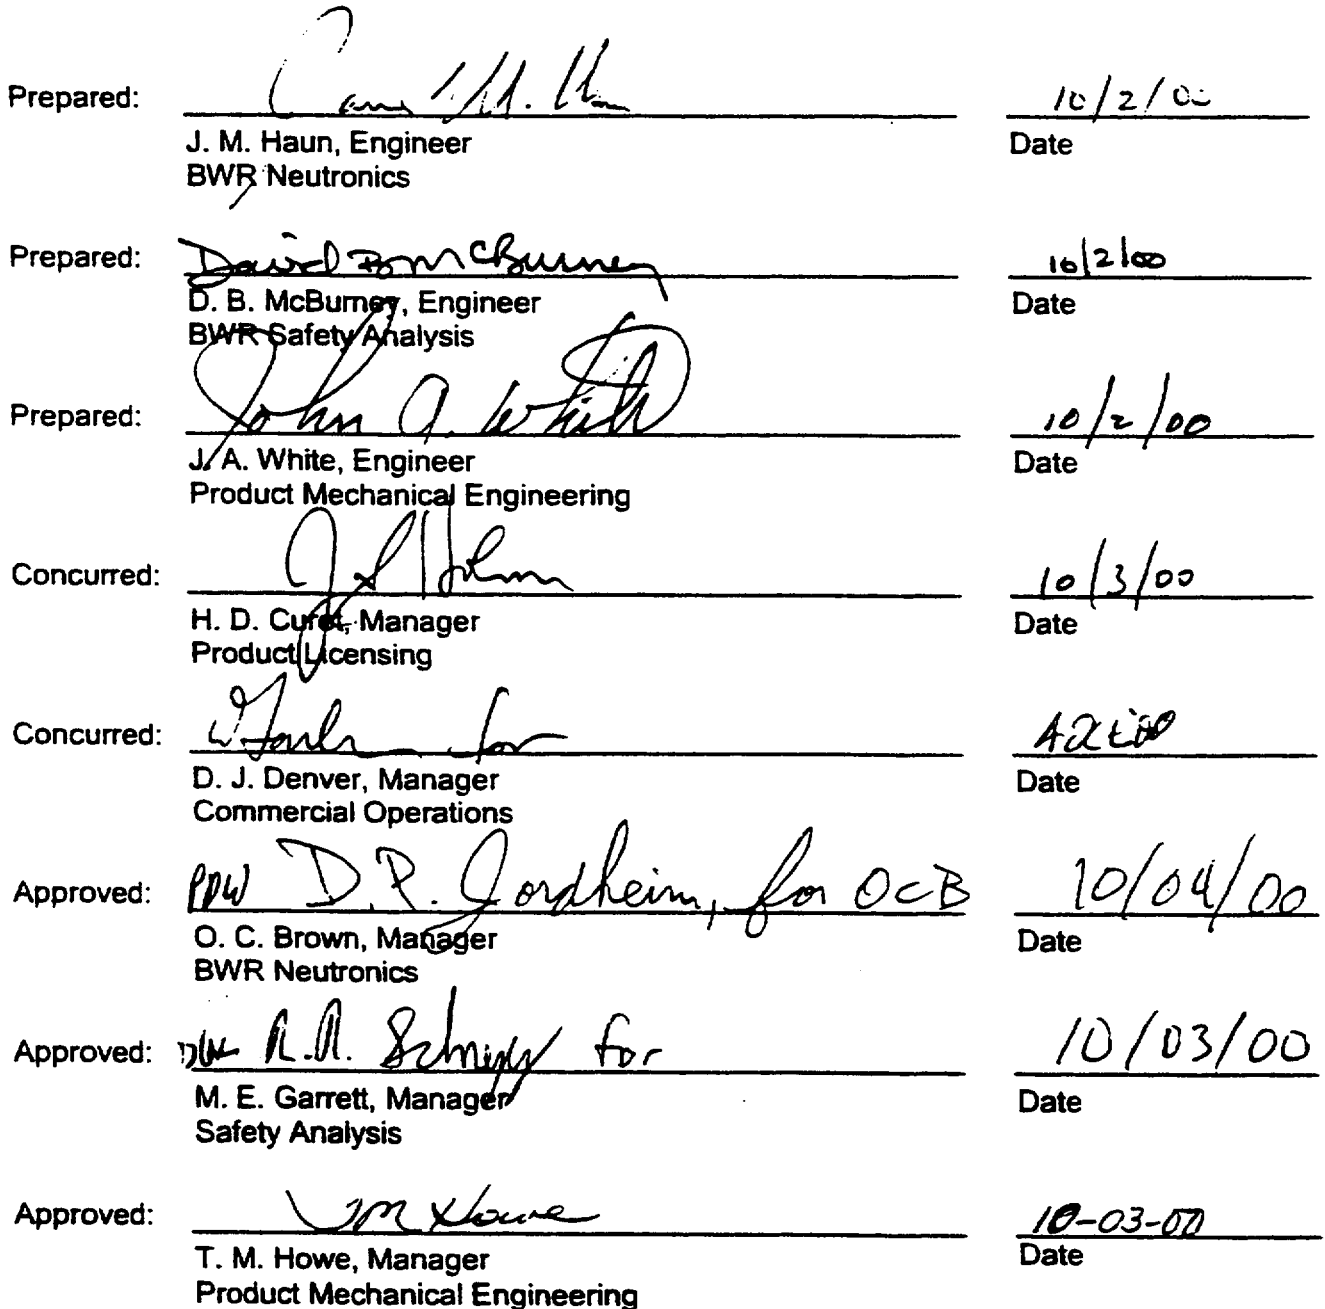 Prepared: 10/2/00
J. M. Haun, Engineer Date
BWR Neutronics
Prepared: David B McBurney 10/2/00
D. B. McBurney, Engineer Date
BWR Safety Analysis
Prepared: John A. White 10/2/00
J. A. White, Engineer Date
Product Mechanical Engineering
Concurred: 10/3/00
H. D. Curet, Manager Date
Product Licensing
Concurred: for
D. J. Denver, Manager Date
Commercial Operations
Approved: D. P. Jordheim, for OCB 10/04/00
O. C. Brown, Manager Date
BWR Neutronics
Approved: R.R. Schnepp for 10/03/00
M. E. Garrett, Manager Date
Safety Analysis
Approved: TM Howe 10-03-00
T. M. Howe, Manager Date
Product Mechanical Engineering